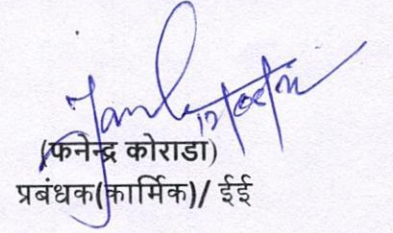 (फनेन्द्र कोराडा)
प्रबंधक(कार्मिक)/ ईई